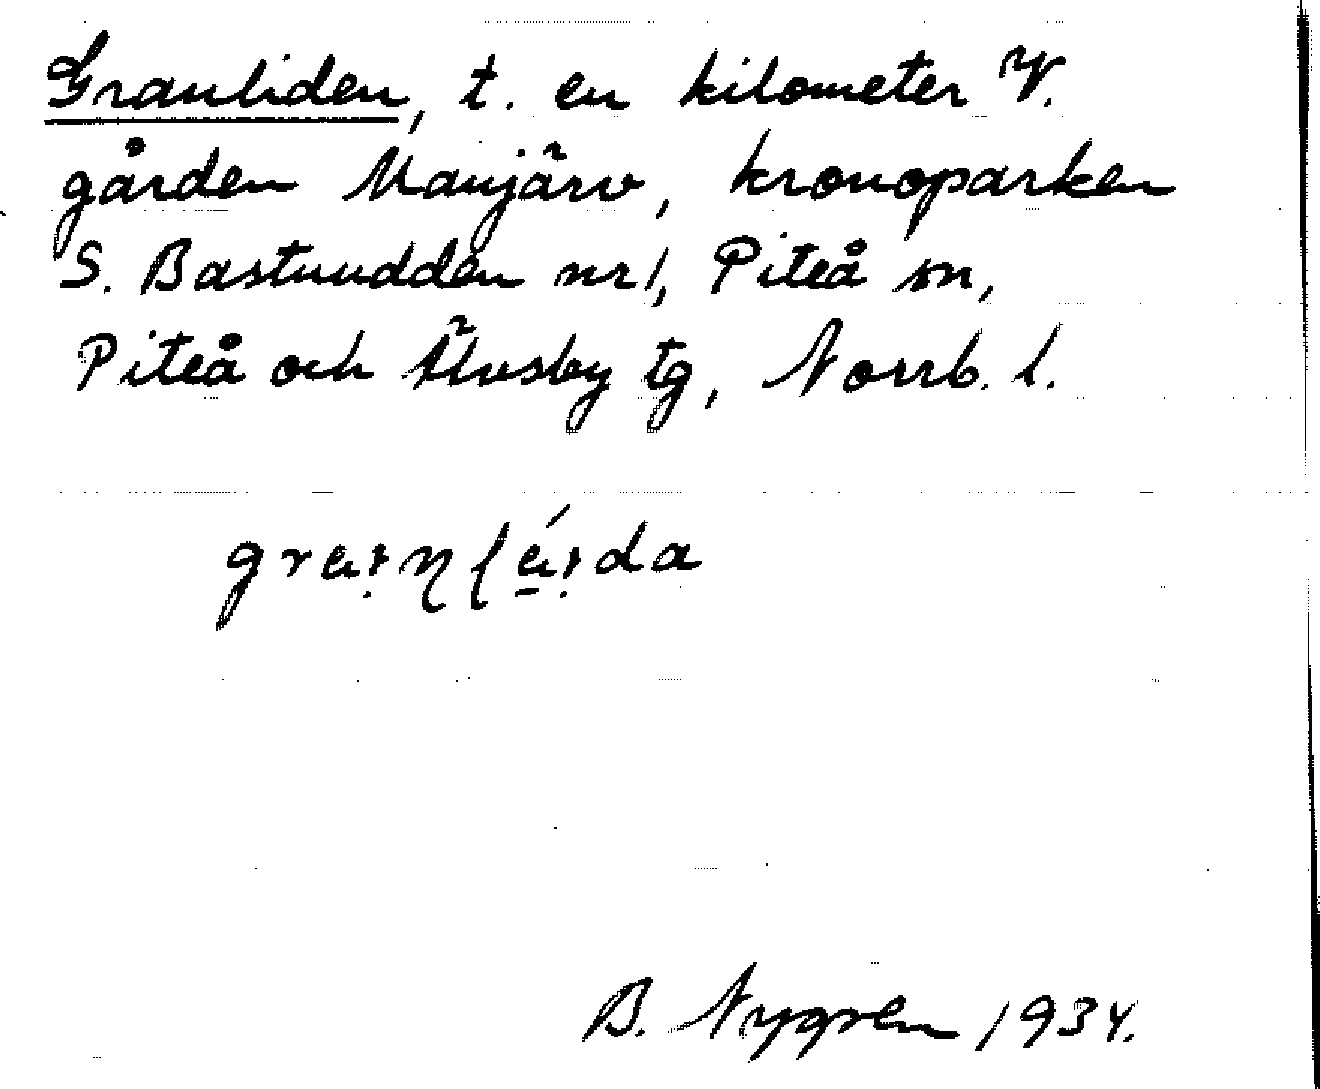 Granliden, t. en kilometer V.
gården Manjärv, kronoparken
S. Bastuudden nr 1, Piteå sn,
Piteå och Älvsby tg, Norrb. l.
B. Nygren 1934.